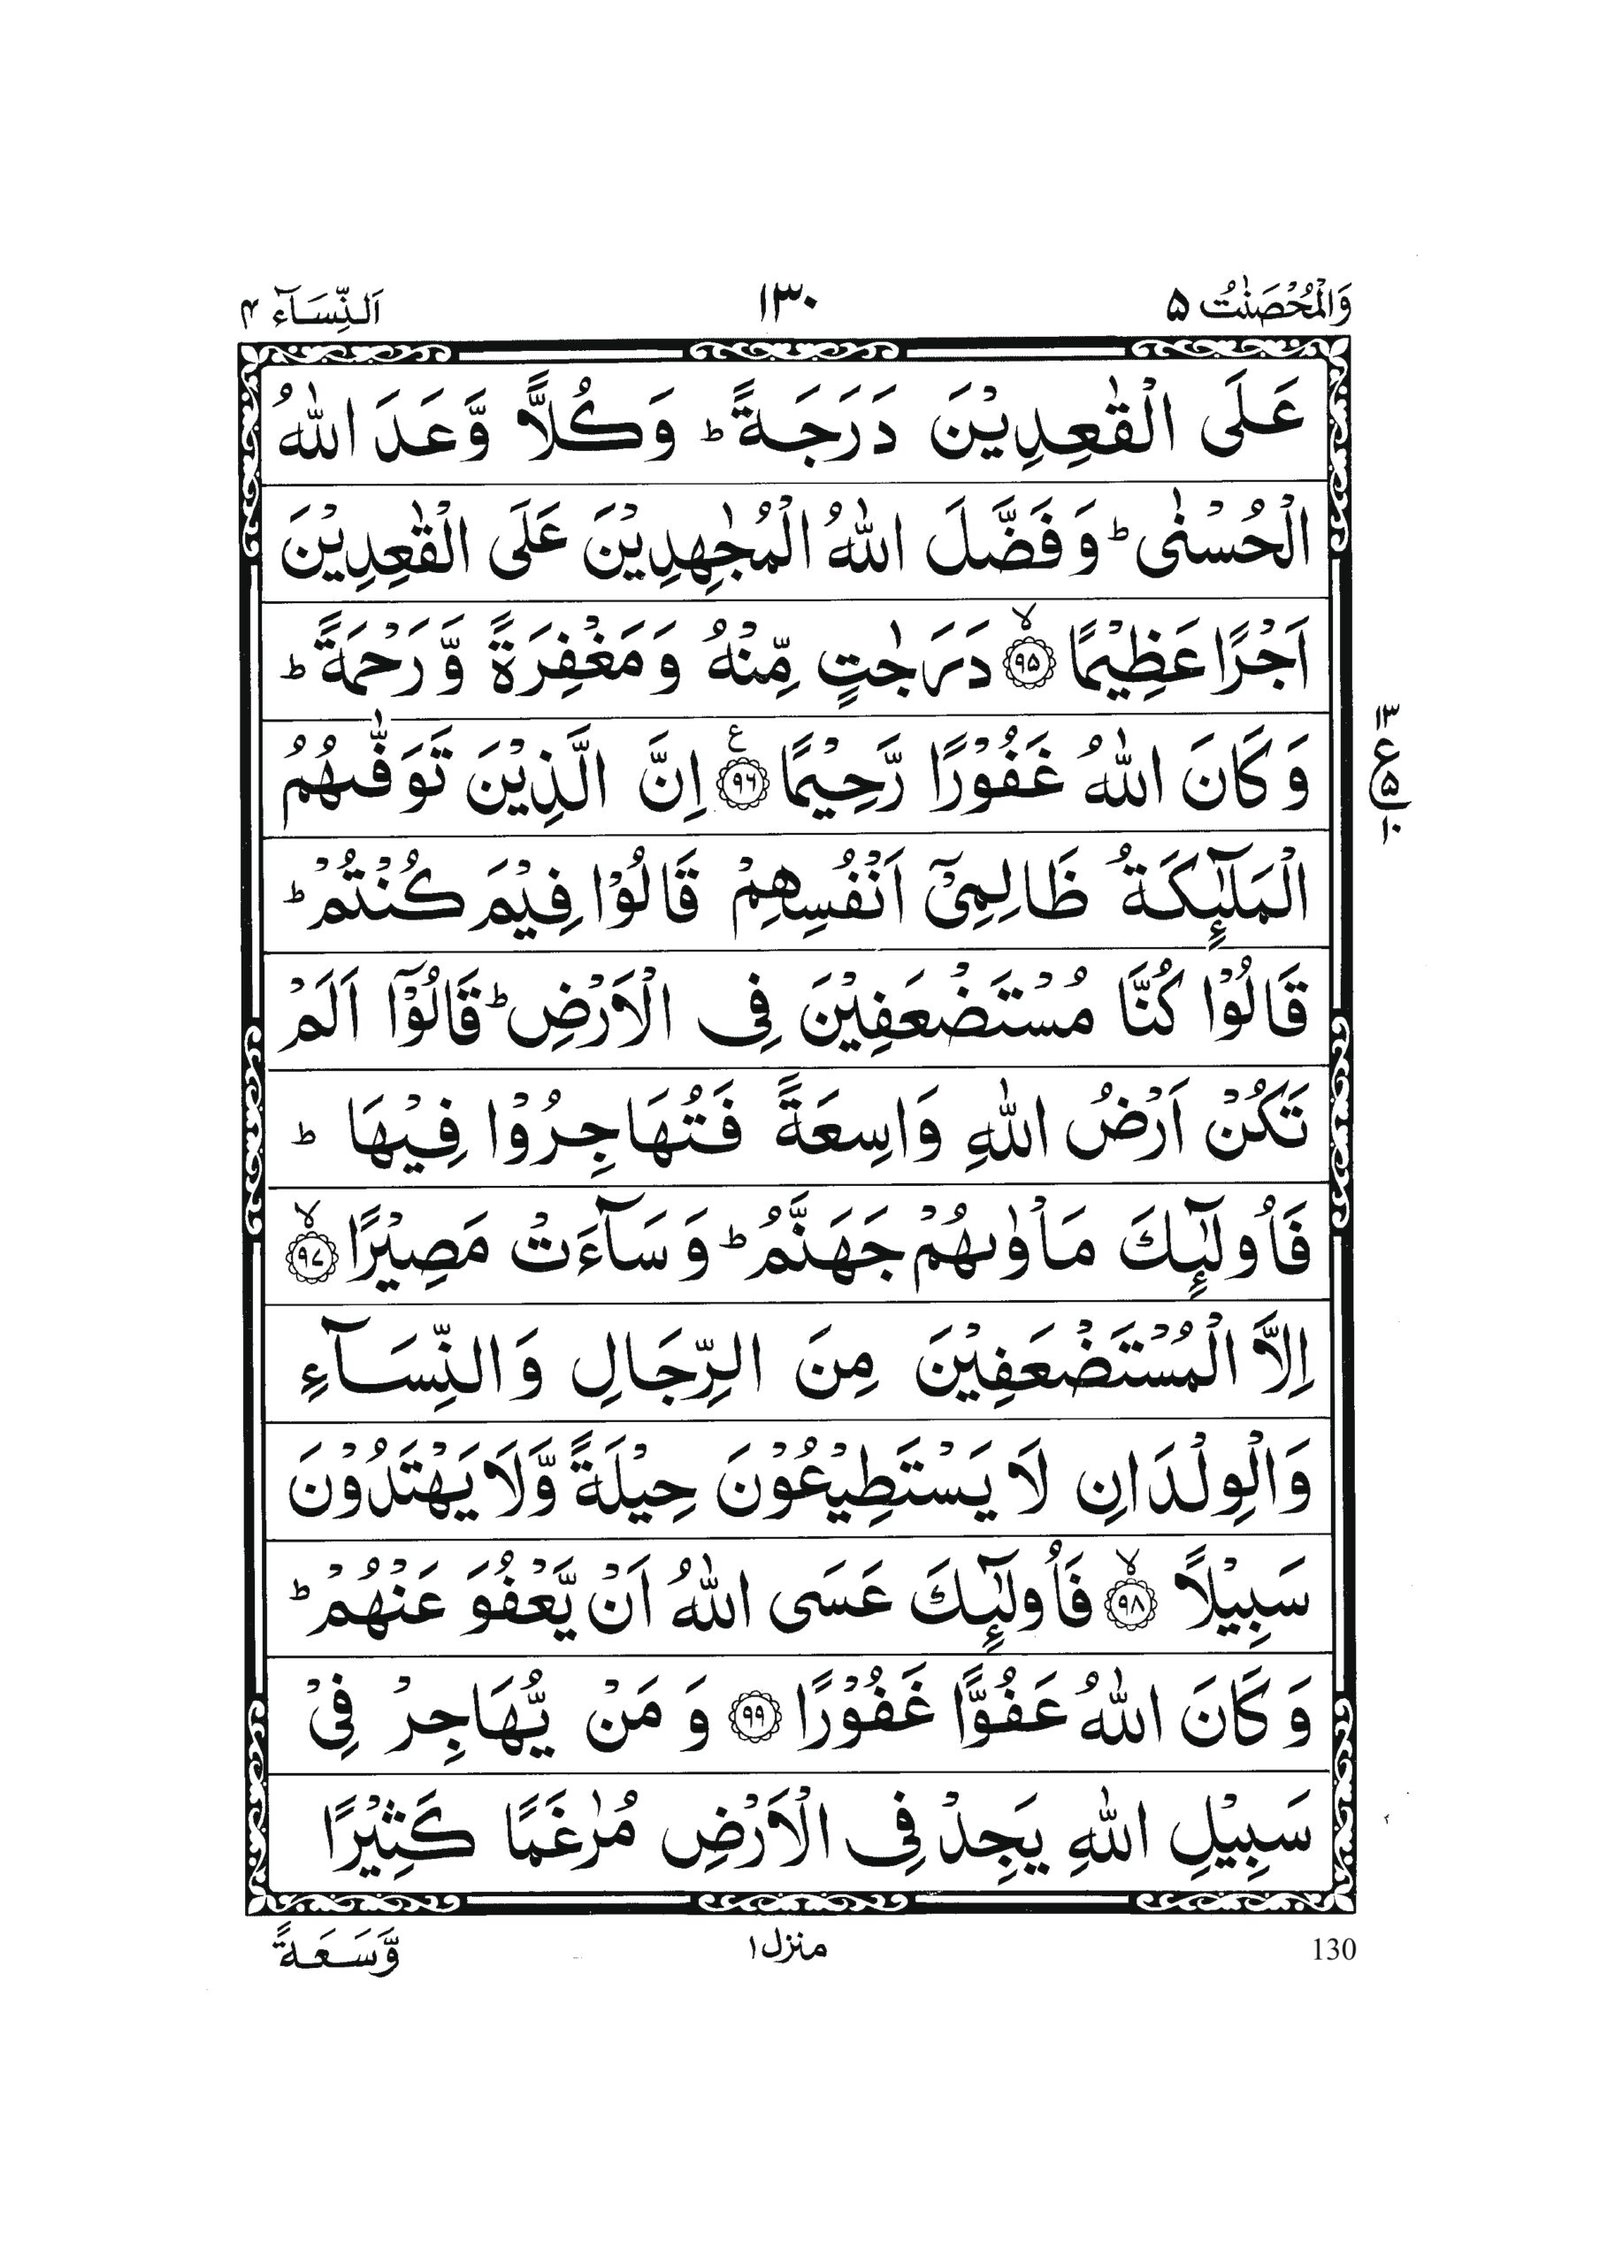 وَالْمُحْصَنٰتُ ۵ ۱۳۰ اَلنِّسَآء ۴
عَلَى الْقٰعِدِيْنَ دَرَجَةً ؕ وَكُلًّا وَّعَدَ اللّٰهُ
الْحُسْنٰى ؕ وَفَضَّلَ اللّٰهُ الْمُجٰهِدِيْنَ عَلَى الْقٰعِدِيْنَ
اَجْرًا عَظِيْمًا ۙ‏﴿۹۵﴾ دَرَجٰتٍ مِّنْهُ وَمَغْفِرَةً وَّرَحْمَةً ؕ
وَكَانَ اللّٰهُ غَفُوْرًا رَّحِيْمًا ﴿۹۶﴾ ع اِنَّ الَّذِيْنَ تَوَفّٰىهُمُ
الْمَلٰٓئِكَةُ ظَالِمِىْٓ اَنْفُسِهِمْ قَالُوْا فِيْمَ كُنْتُمْ ؕ
قَالُوْا كُنَّا مُسْتَضْعَفِيْنَ فِى الْاَرْضِ ؕ قَالُوْٓا اَلَمْ
تَكُنْ اَرْضُ اللّٰهِ وَاسِعَةً فَتُهَاجِرُوْا فِيْهَا ؕ
فَاُولٰٓئِكَ مَاْوٰىهُمْ جَهَنَّمُ ؕ وَسَآءَتْ مَصِيْرًا ۙ‏﴿۹۷﴾
اِلَّا الْمُسْتَضْعَفِيْنَ مِنَ الرِّجَالِ وَالنِّسَآءِ
وَالْوِلْدَانِ لَا يَسْتَطِيْعُوْنَ حِيْلَةً وَّلَا يَهْتَدُوْنَ
سَبِيْلًا ۙ‏﴿۹۸﴾ فَاُولٰٓئِكَ عَسَى اللّٰهُ اَنْ يَّعْفُوَ عَنْهُمْ ؕ
وَكَانَ اللّٰهُ عَفُوًّا غَفُوْرًا ﴿۹۹﴾ وَمَنْ يُّهَاجِرْ فِىْ
سَبِيْلِ اللّٰهِ يَجِدْ فِى الْاَرْضِ مُرٰغَمًا كَثِيْرًا
۱۳
ع ۵
۱۰
130 منزل ۱ وَّسَعَةً